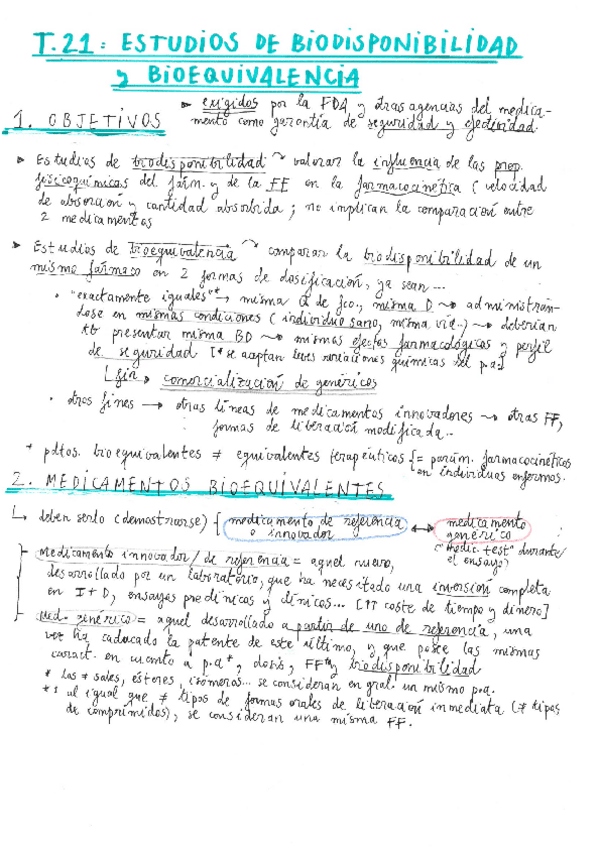 T.21: ESTUDIOS DE BIODISPONIBILIDAD
y BIOEQUIVALENCIA
1. OBJETIVOS
▸ exigidos por la FDA y otras agencias del medica-
mento como garantía de seguridad y efectividad
▸ Estudios de biodisponibilidad → valorar la influencia de las prop.
fisicoquímicas del fárm. y de la FF en la farmacocinética (velocidad
de absorción y cantidad absorbida; no implican la comparación entre
2 medicamentos
▸ Estudios de bioequivalencia → comparar la biodisponibilidad de un
mismo fármaco en 2 formas de dosificación, ya sean...
• "exactamente iguales"* → misma Q de fco., misma D ⇝ administrán-
dose en mismas condiciones (individuo sano, misma vía..) ⇝ deberían
presentar misma BD ⇝ mismos efectos farmacológicos y perfil
de seguridad [* se aceptan leves variaciones químicas del p.a]
↳ fin ▸ comercialización de genéricos
• otros fines → otras líneas de medicamentos innovadores ⇝ otras FF,
formas de liberación modificada..
* pdtos. bioequivalentes ≠ equivalentes terapéuticos [= parám. farmacocinéticos
en individuos enfermos.
2. MEDICAMENTOS BIOEQUIVALENTES
↳ deben serlo (demostrarse) { medicamento de referencia
o innovador ↔ medicamento
genérico
("medic. test" durante
el ensayo)
- Medicamento innovador / de referencia = aquel nuevo,
desarrollado por un laboratorio, que ha necesitado una inversión completa
en I+D, ensayos preclínicos y clínicos... [↑↑ coste de tiempo y dinero]
- Med. genérico = aquel desarrollado a partir de uno de referencia, una
vez ha caducado la patente de este último, y que posee las mismas
caract. en cuanto a p.a*, dosis, FF* y biodisponibilidad
* las ≠ sales, ésteres, isómeros... se consideran en gral. un mismo p.a.
* al igual que ≠ tipos de formas orales de liberación inmediata (≠ tipos
de comprimidos), se consideran una misma FF.